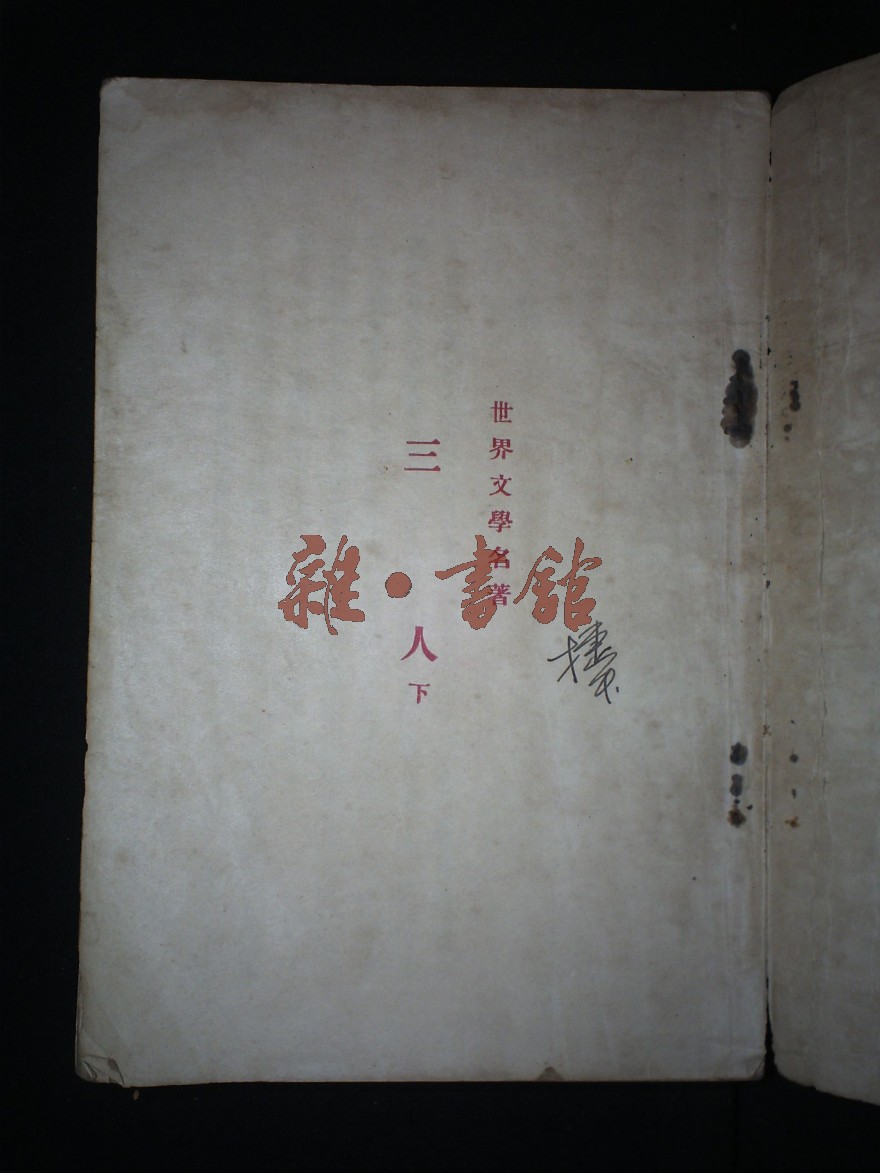 世界文學名著
三人
下
雜·書館